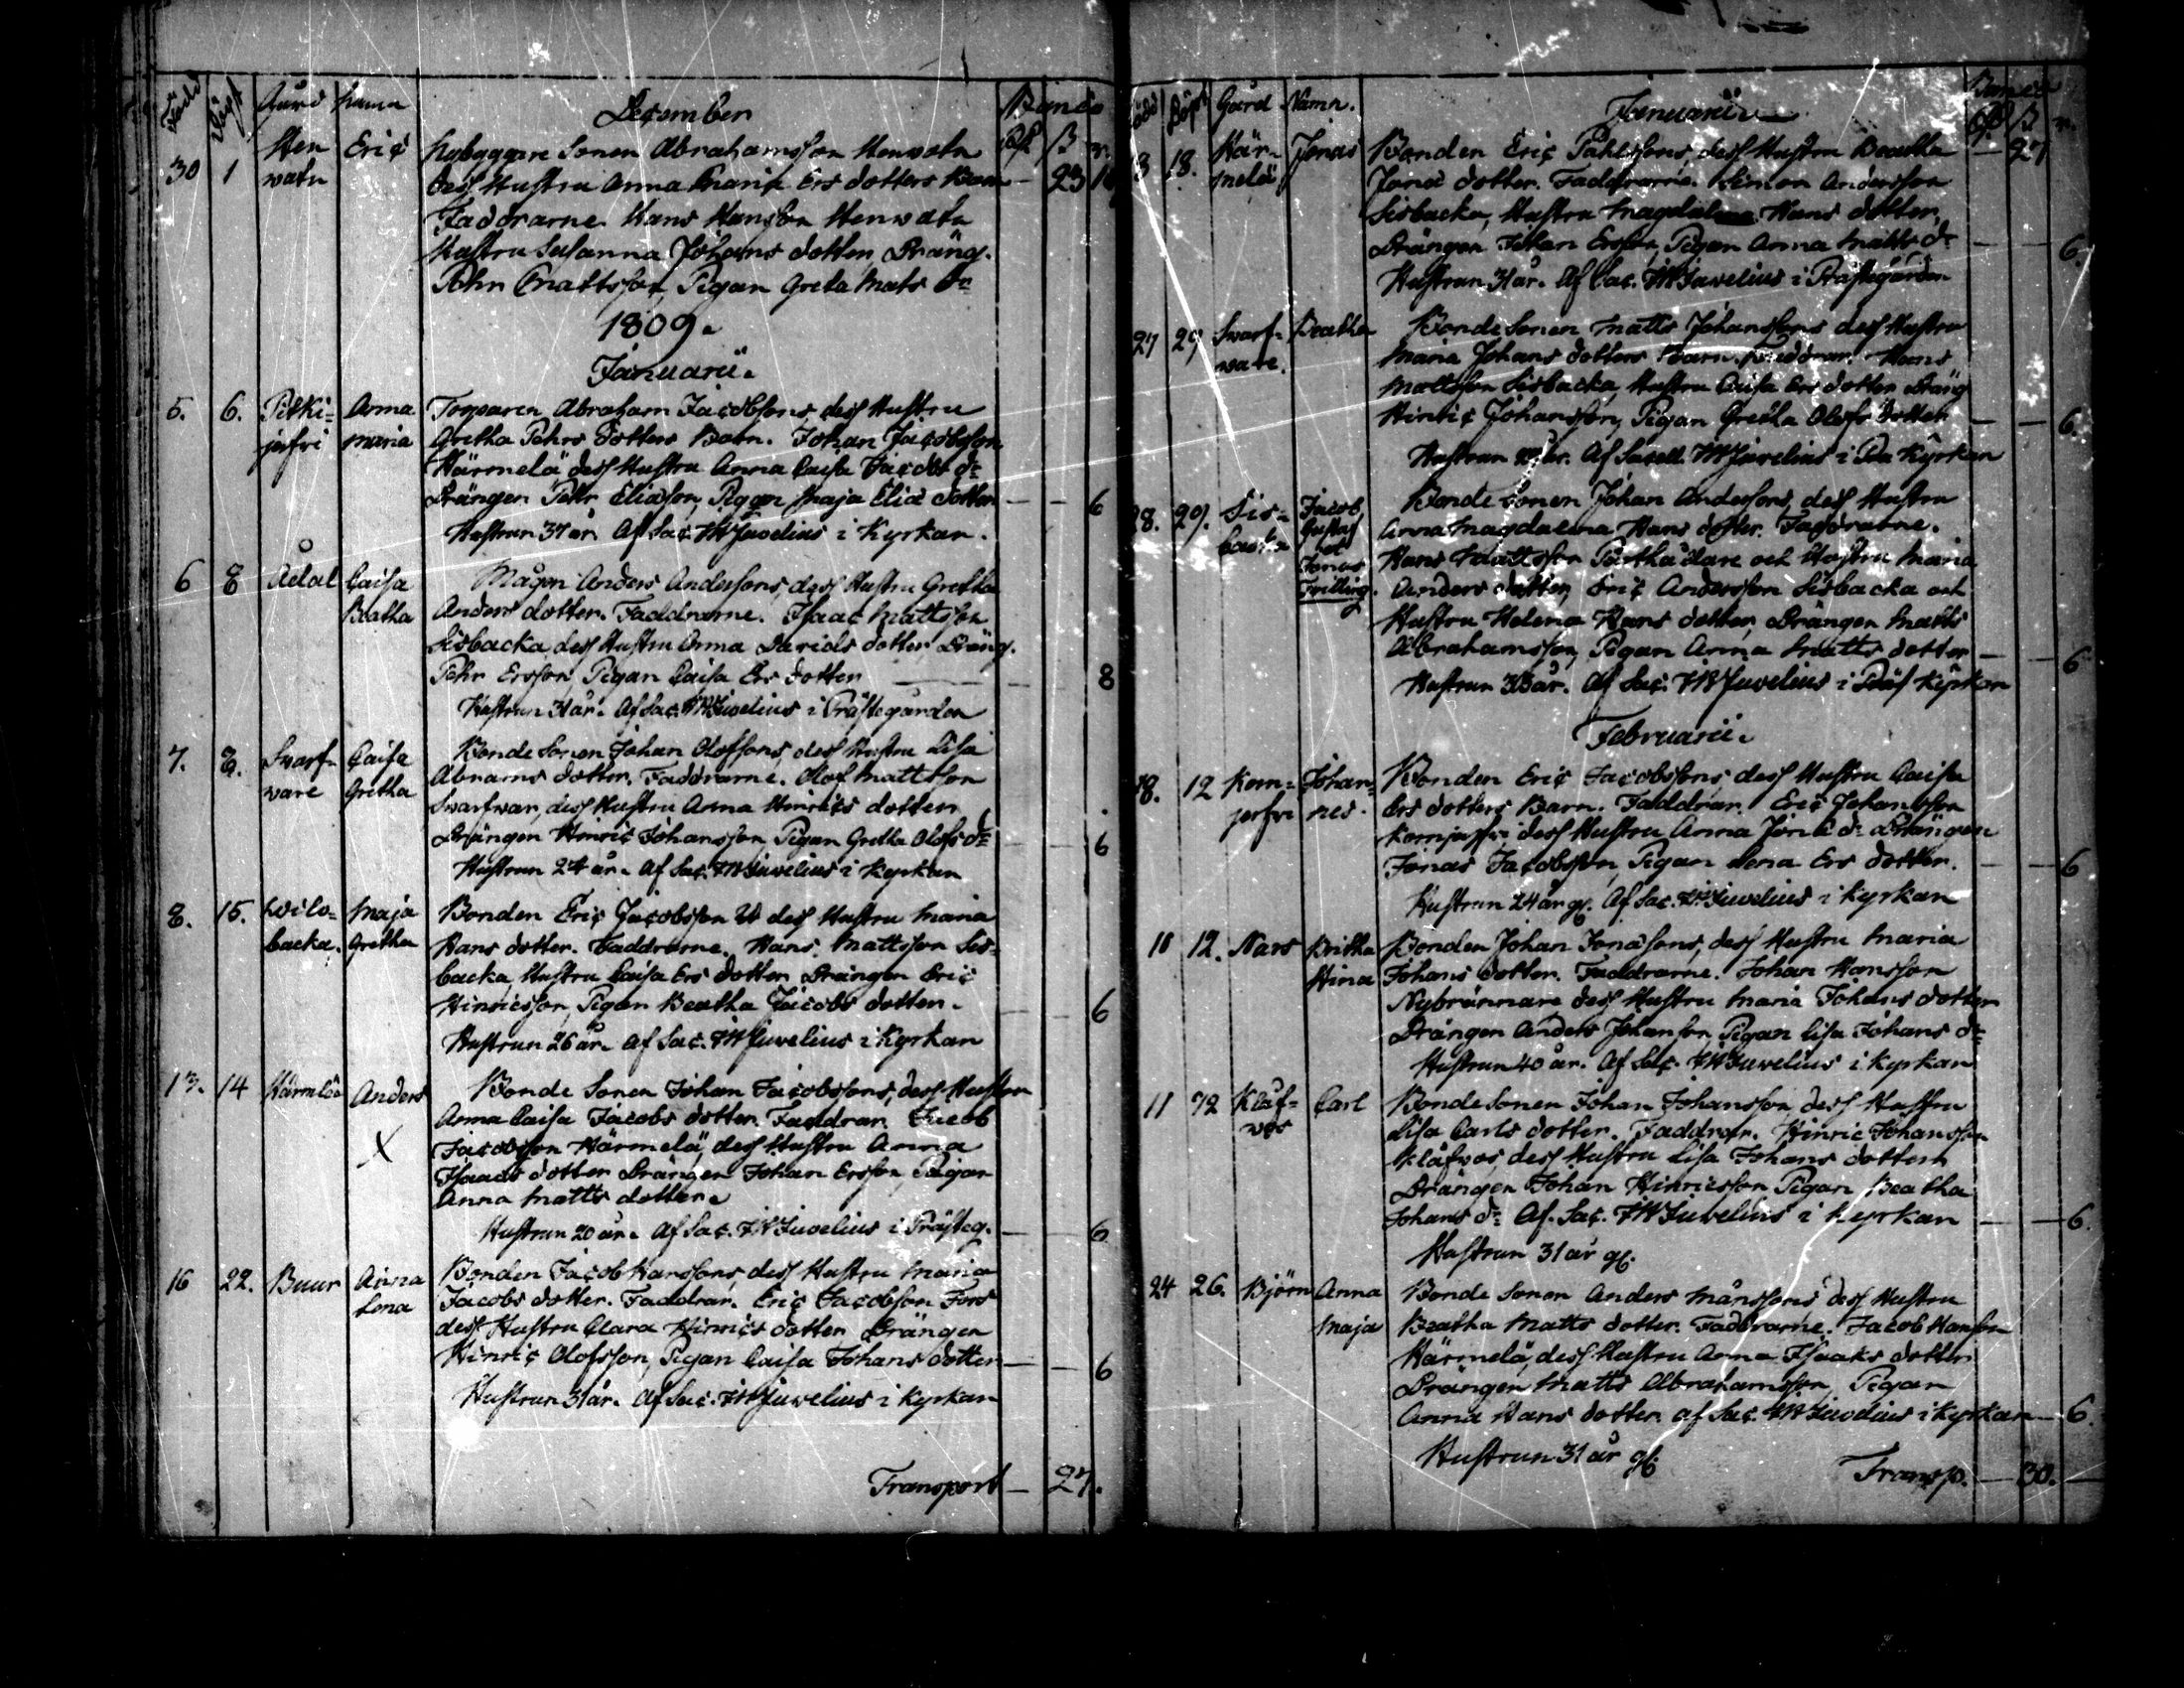 Född Döpt Gård Namn December Barns
30 1 Hen Eric Nybyggare Sonen Abrahamsson Henvatn
vatn dess Hustru Anna Maria Ers dotters Barn — 23
Faddrarne Hans Hansson Henvatn
Hustru Susanna Johans dotter, Dräng.
Pehr Mattsson, Pigan Greta Mats dr
1809.
Januarii.
5. 6. Pitki= Anna Torparen Abraham Jacobssons dess Hustru
jerfvi Maria Gretha Pehrs dotters Barn. Johan Jacobsson
Härmelä dess Hustru Anna Caisa Jacobs dr
Drängen Pehr Eliasson, Pigan Maja Eliæ dotter — 6
Hustrun 37 år Af Sac. Juvelius i Kyrkan.
6 8 Ådal Caisa Mågen Anders Anderssons, dess Hustru Gretha
Beatha Anders dotter. Faddrarne. Isaac Mattsson
Sisbacka, dess Hustru Anna Davids dotter Dräng.
Pehr Ersson, Pigan Caisa Ers dotter — 8
Hustrun 31 år. Af Sac. Juvelius i Prästegården
7. 8. Svarf= Caisa Bonde Sonen Johan Olofssons, dess Hustru Lisa
vare Gretha Abrams dotter. Faddrarne. Olof Mattsson
Svarfvar, dess Hustru Anna Hinrics dotter
Drängen Henric Johansson, Pigan Gretha Olofs dr — 6
Hustrun 24 år. Af Sac. Juvelius i Kyrkan
8. 15. Wilo= Maja Bonden Eric Jacobsson dess Hustru Maria
backa. Gretha Hans dotter. Faddrarne. Hans Mattsson Sis=
backa, Hustru Caisa Ers dotter Drängen Eric
Hinricsson, Pigan Beatha Jacobs dotter. — 6
Hustrun 26 år. Af Sac. Juvelius i Kyrkan
13. 14 Härmälä Anders Bonde Sonen Johan Jacobssons, dess Hustru
Anna Caisa Jacobs dotter. Faddrar. Jacob
X Jacobsson Härmelä, dess Hustru Anna
Isaacs dotter Drängen Johan Ersson, Pigan
Anna Matts dotter.
Hustrun 20 år. Af Sac. Juvelius i Prästeg. — 6
16 22. Buur Anna Bonden Jacob Hanssons, dess Hustru Maria
Lena Jacobs dotter. Faddrar. Eric Jacobson Fors
dess Hustru Clara Hinrics dotter Drängen
Hinric Olofsson, Pigan Caisa Johans dotter — 6
Hustrun 31 år. Af Sac. Juvelius i Kyrkan
Transport — 27.
Född Döpt Gård Namn. Januarii
18. Här= Jonas Bonden Eric Pahlssons, dess Hustru Beatha — 27
melä Jonæ dotter. Faddrarne. Simon Andersson
Sisbacka, Hustru Magdalena Hans dotter,
Drängen Johan Ersson, Pigan Anna Matts dr — 6.
Hustrun 31 år. Af Sac. Juvelius i Prästegården
27 29 Svarf= Beatha Bonde Sonen Matts Johanssons dess Hustru
vare. Maria Johans dotters Barn. Faddrar. Hans
Mattsson Sisbacka, Hustru Caisa Ers dotter Dräng
Hinric Johansson, Pigan Gretha Olofs dotter — 6.
Hustrun år. Af Sacell. Juvelius i Kyrkan
28. 29. Sis= Jacob Bonde Sonen Johan Anderssons, dess Hustru
backa Gustaf Anna Magdalena Hans dotter. Faddrarne.
Jonas Hans Mattsson och Hustru Maria
Tvilling. Anders dotter, Eric Andersson Sisbacka och
Hustru Helena Hans dotter, Drängen Matts
Abrahamsson, Pigan Anna Matts dotter — 6
Hustrun 33 år. Af Sac. Juvelius i Kyrkan
Februarii.
8. 12 Korn= Johan= Bonden Eric Jacobssons dess Hustru Caisa
jerfvi nes. Ers dotters Barn. Faddrar. Eric Johansson
Kornjerfvi dess Hustru Anna Jonæ dr Drängen
Jonas Jacobsson, Pigan Lena Ers dotter. — 6
Hustrun 24 år gl. Af Sac. Juvelius i Kyrkan
10 12. Nars Britha Bonden Johan Jonassons, dess Hustru Maria
Stina Johans dotter. Faddrarne. Johan Hansson
Nybrännare dess Hustru Maria Johans dotter
Drängen Anders Johanson, Pigan Lisa Johans dr
Hustrun 40 år. Af Sac. Juvelius i Kyrkan
11 12 Klåf= Carl Bonde Sonen Johan Johansson dess Hustru
vos Lisa Carls dotter. Faddrar. Hinric Johansson
Klåfvos, dess Hustru Lisa Johans dotter
Drängen Johan Hinricsson Pigan Beatha
Johans dr Af. Sac. Juvelius i Kyrkan — 6.
Hustrun 31 år gl.
24 26. Björn Anna Bonde Sonen Anders Månssons dess Hustru
Maja Beatha Matts dotter. Faddrarne. Jacob Hansson
Härmelä, dess Hustru Anna Isaaks dotter
Drängen Matts Abrahamsson, Pigan
Anna Hans dotter. af Sac. Juvelius i Kyrkan — 6.
Hustrun 31 år gl.
Transp. — 30. —